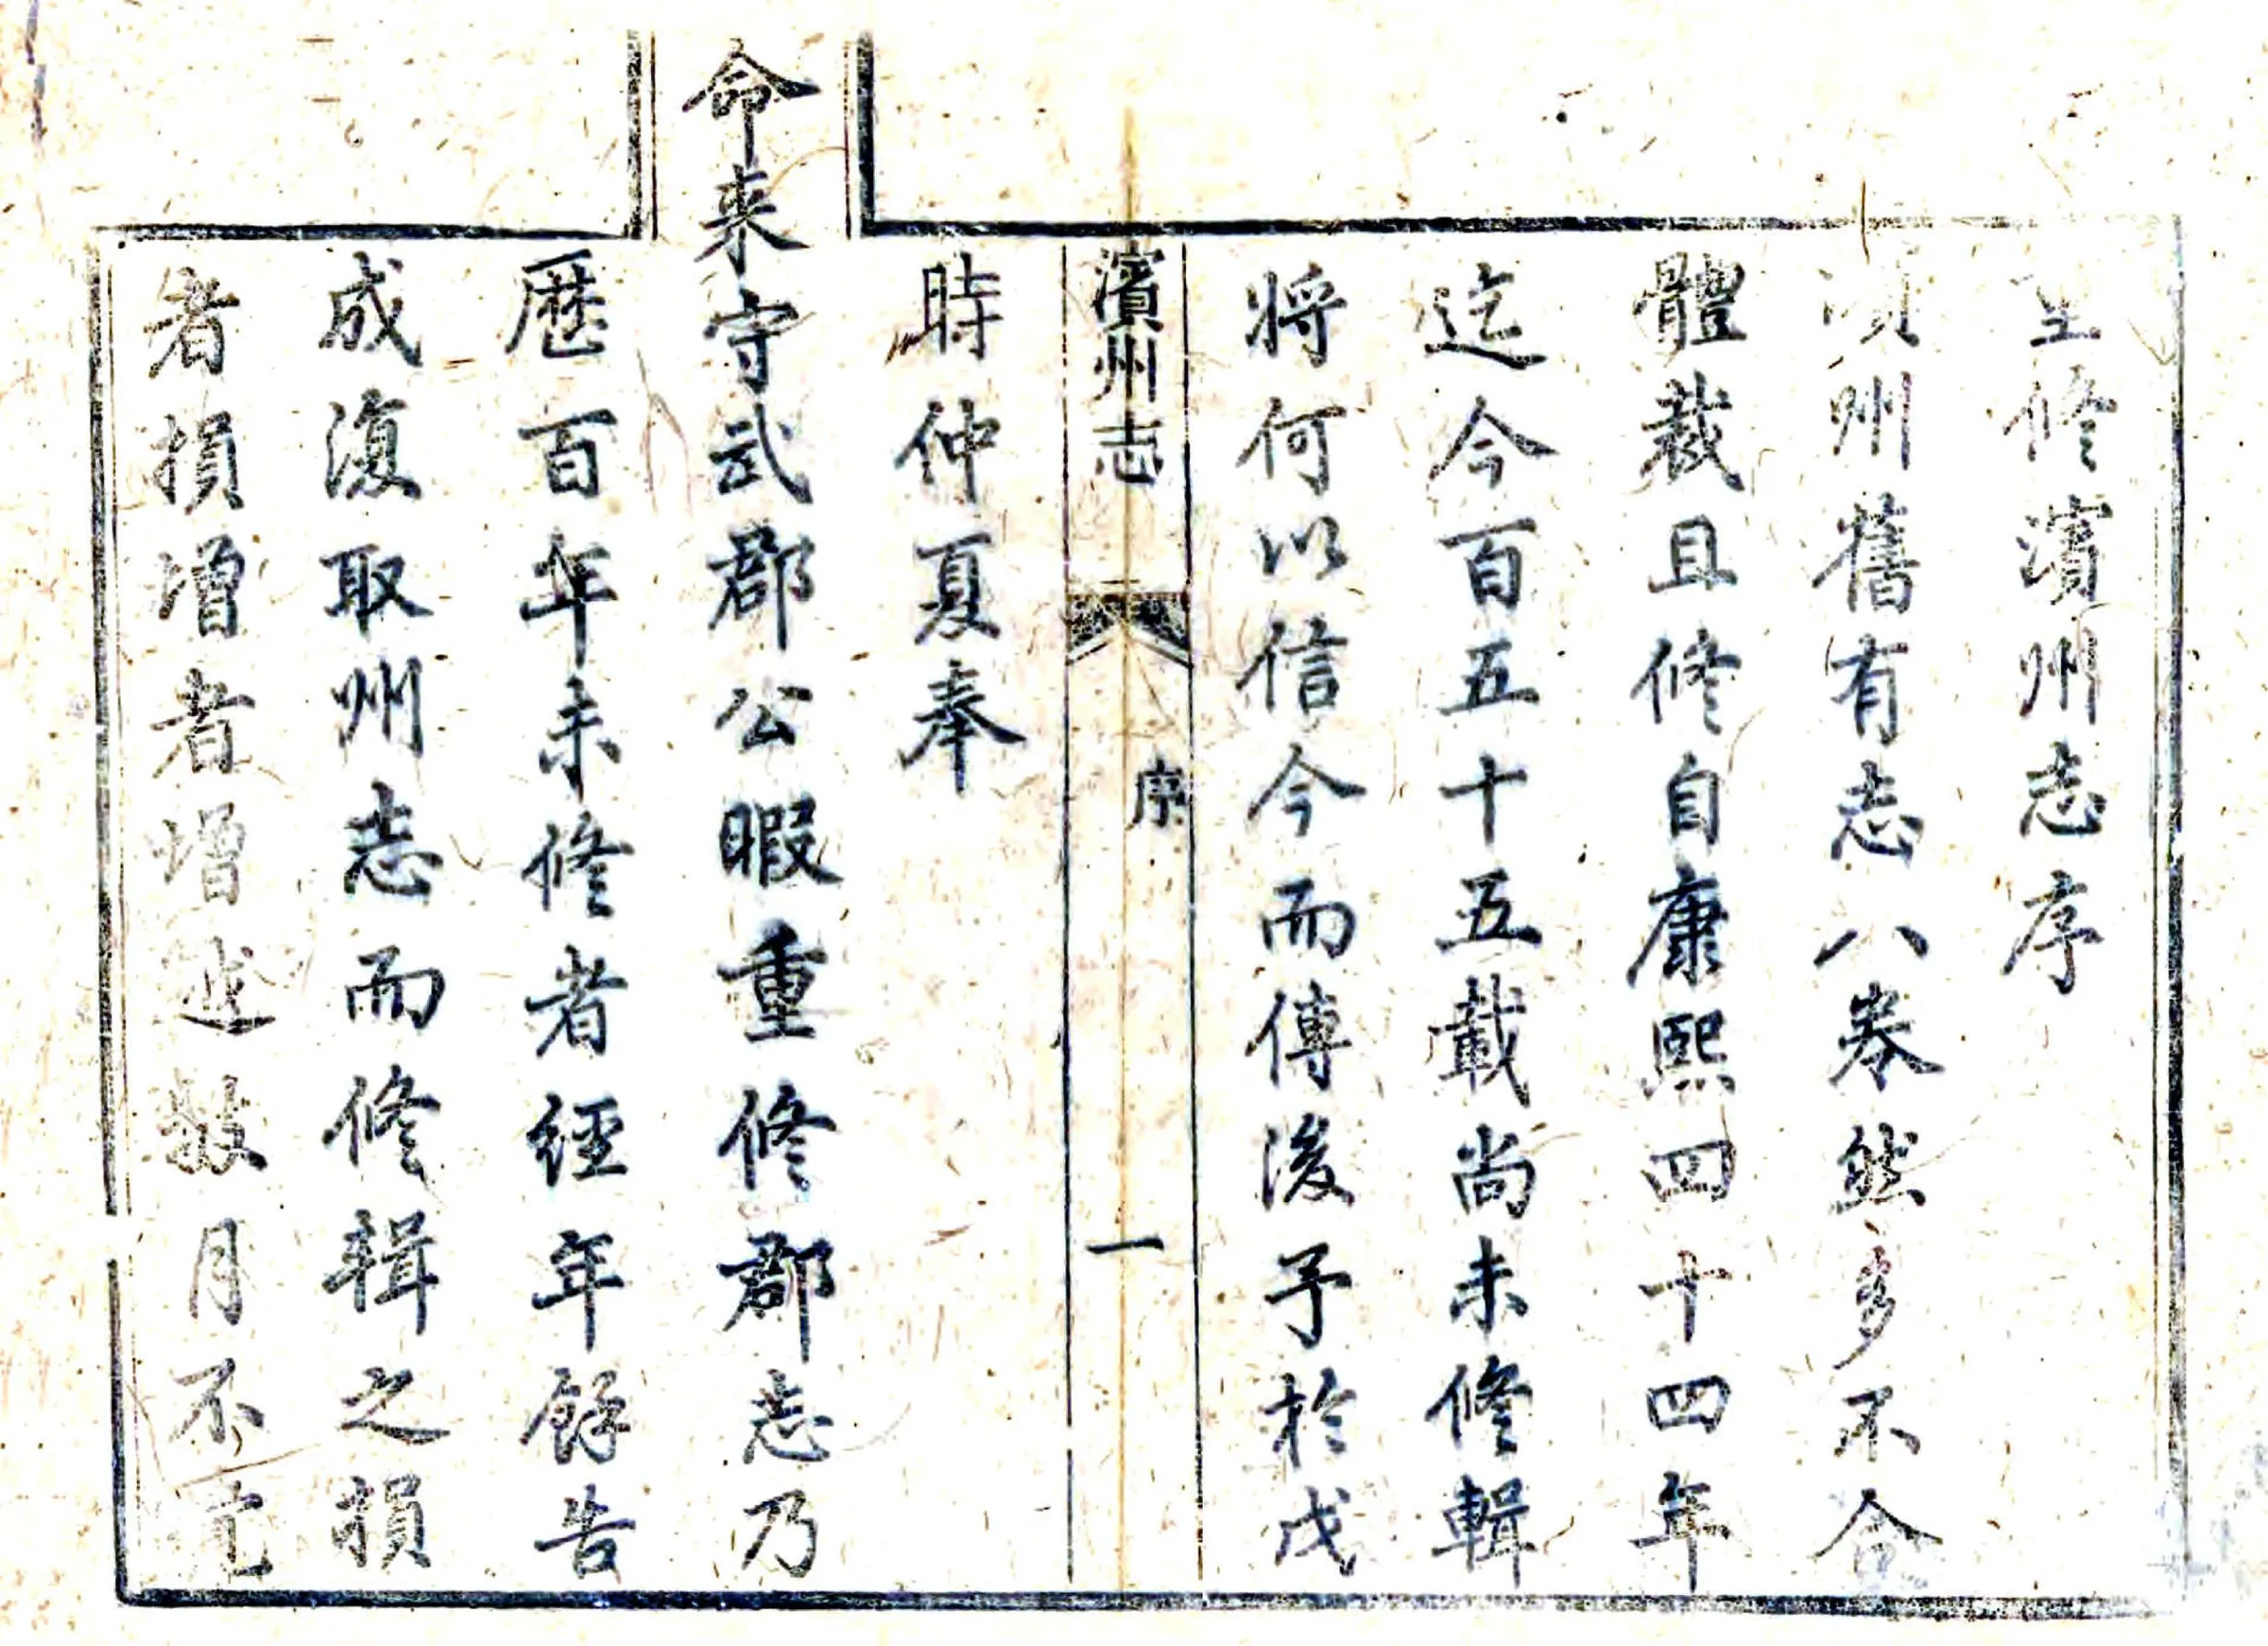 重修濱州志序
濱州舊有志八卷然多不合
體裁且修自康熙四十四年
迄今百五十五載尚未修輯
將何以信今而傳後予於戊
濱州志 序 一
時仲夏奉
命来守武郡公暇重修郡志乃
歷百年未修者經年餘告
成復取州志而修輯之損
者損增者增數月不